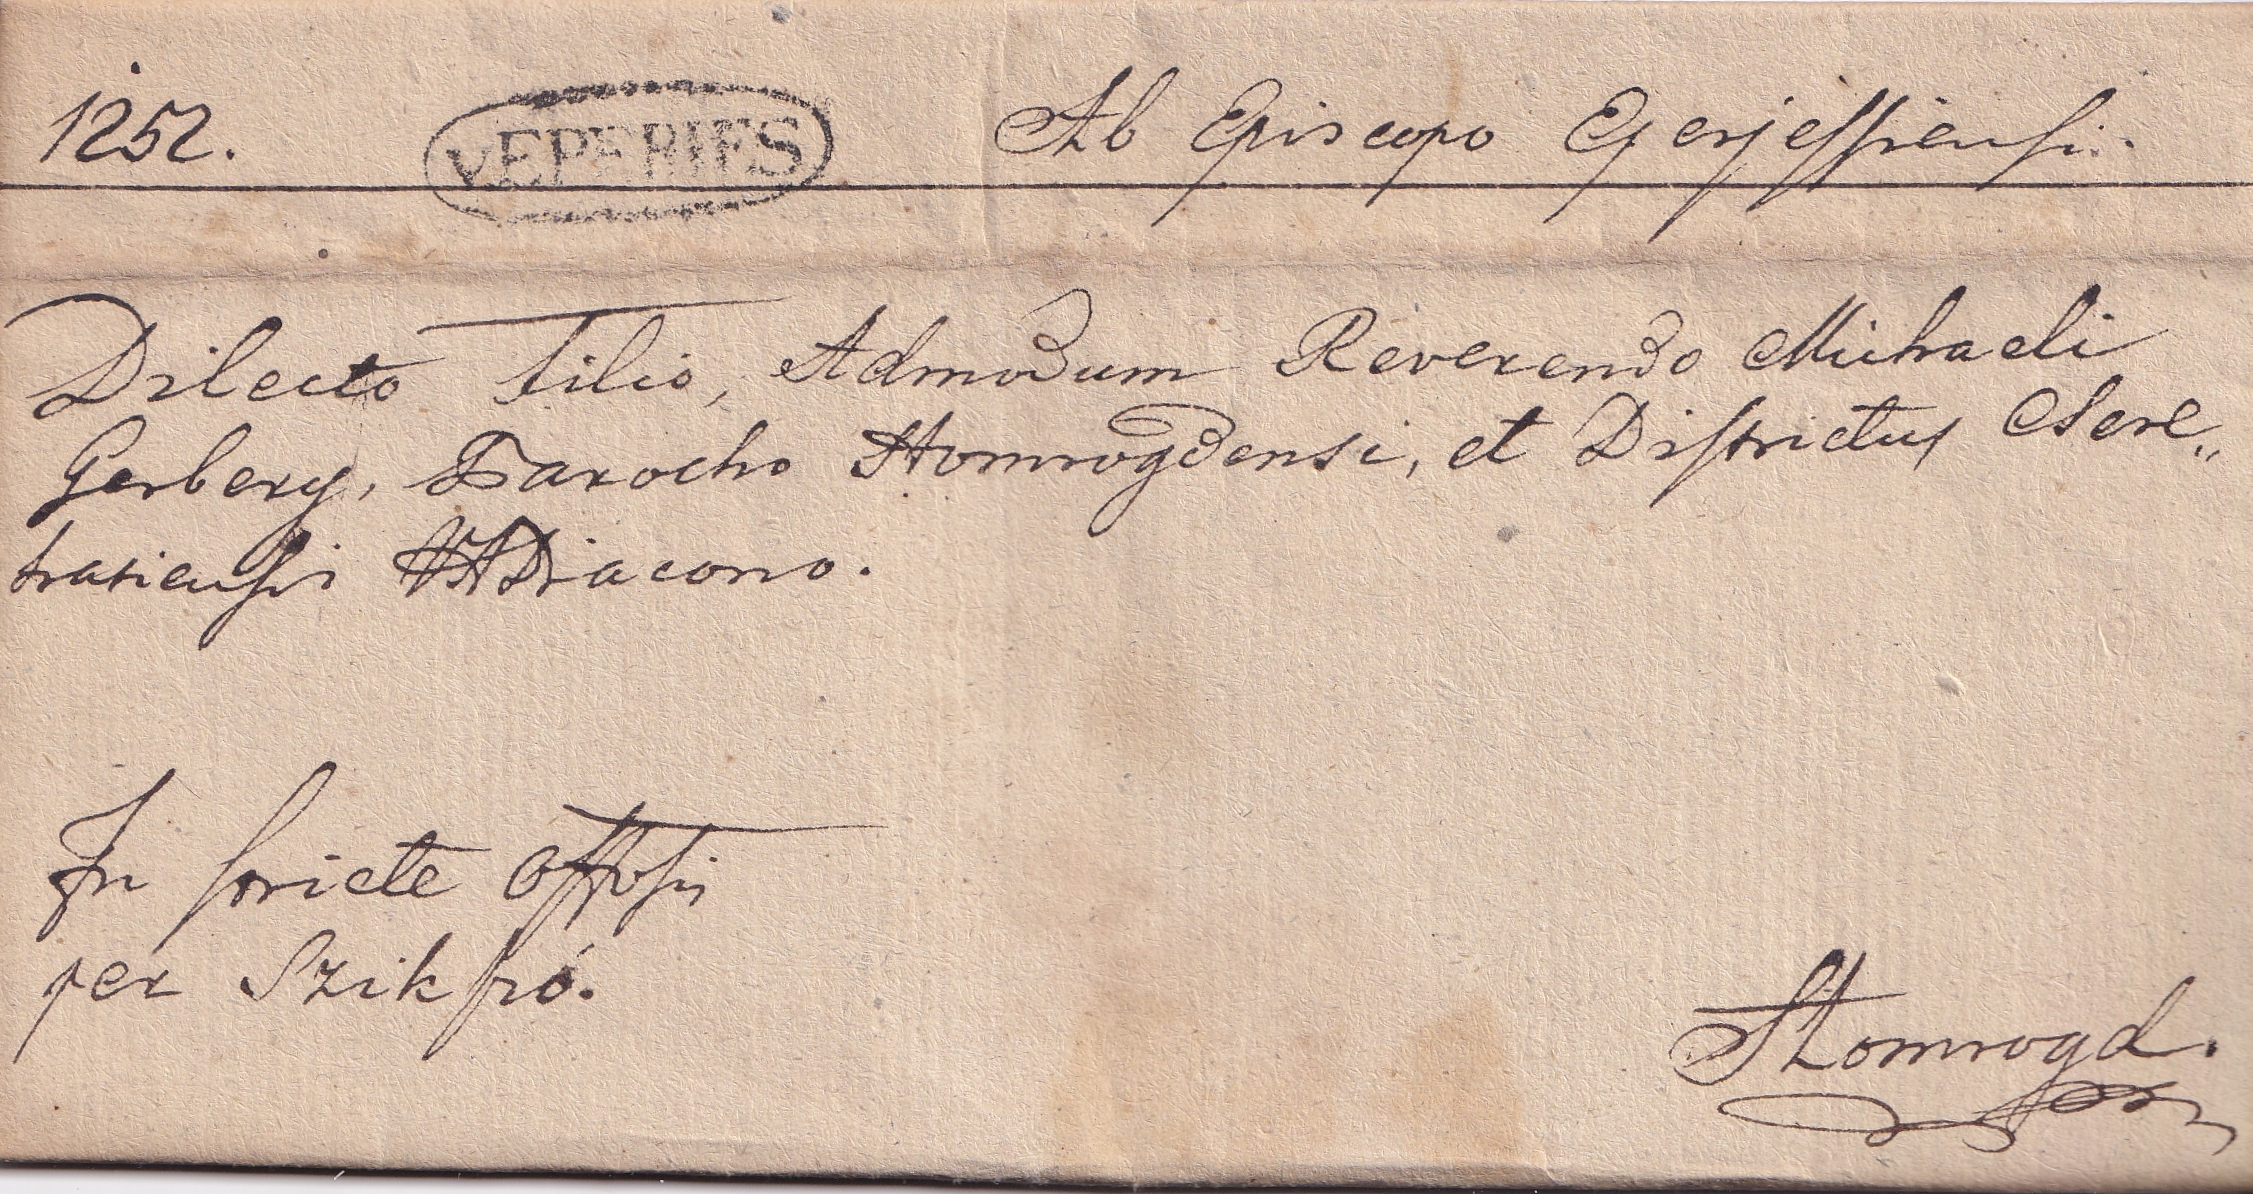 1252. VEPERIES Ab Episcopo Eperjessiensi.
Dilecto Filio, Admodum Reverendo Michaeli
Gerbery, Parocho Homrogdensi, et Districtus Csere„
hatiensis VADiacono.
In
per Szikszó.
Homrogd.